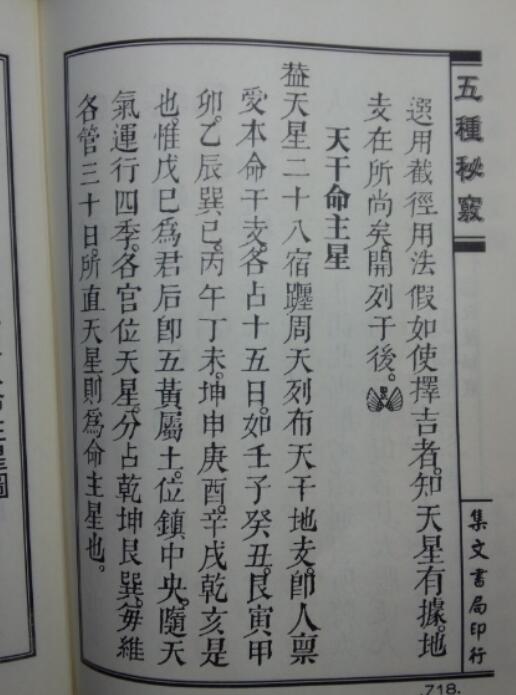 五種秘竅
選用截徑用法假如使擇吉者。知天星有據。地
支在所尚矣。開列于後。
天干命主星
葢天星二十八宿躔周天列布天干地支。卽人禀
受本命干支。各占十五日。如壬子癸丑。艮寅甲
卯。乙辰巽。巳。丙午丁未。坤申庚酉。辛戌乾亥是
也。惟戊巳爲君后卽五黃屬土。位鎮中央。隨天
氣運行四季。各官位天星。分占乾坤艮巽。每維
各管三十日。所直天星則爲命主星也。
集文書局印行
718.